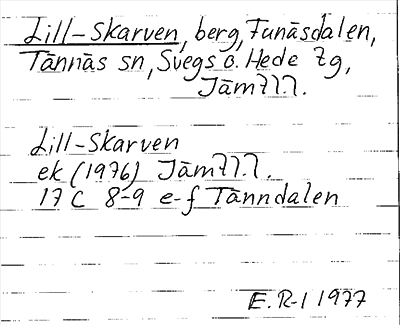 Lill-Skarven, berg, Funäsdalen,
Tännäs sn, Svegs o. Hede tg,
Jämtl.
Lill-Skarven
ek (1976) Jämtl.
17 C 8-9 e-f Tänndalen
E.R-l 1977